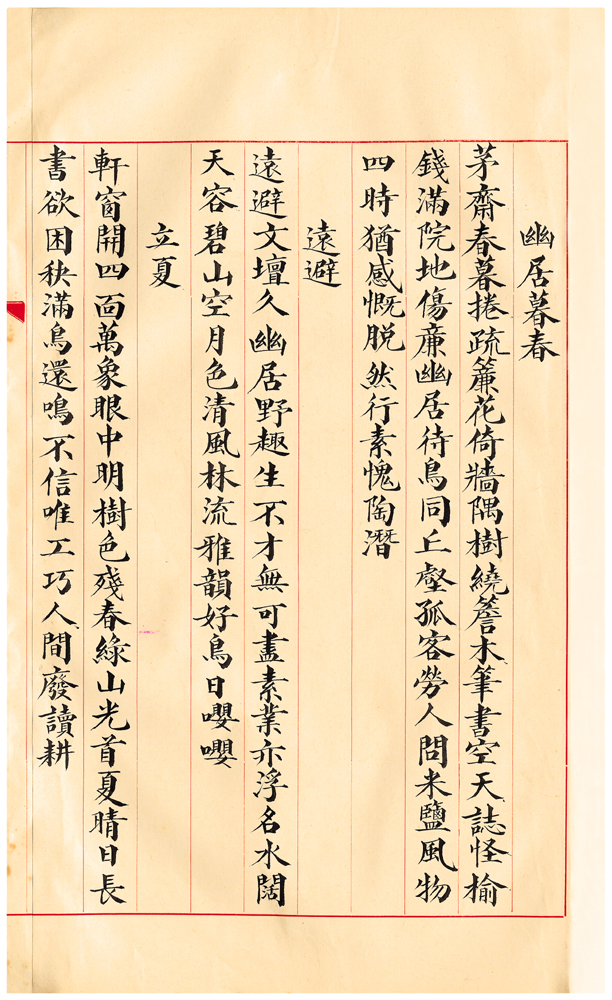 幽居暮春
茅齋春暮捲疏簾花倚牆隅樹繞簷木筆書空天誌怪榆
錢滿院地傷廉幽居待鳥同丘壑孤客勞人問米鹽風物
四時猶感慨脱然行素愧陶潛
遠避
遠避文壇久幽居野趣生不才無可盡素業亦浮名水闊
天容碧山空月色清風林流雅韻好鳥日嚶嚶
立夏
軒窗開四面萬象眼中明樹色殘春綠山光首夏晴日長
書欲困秧滿鳥還鳴不信唯工巧人間廢讀耕